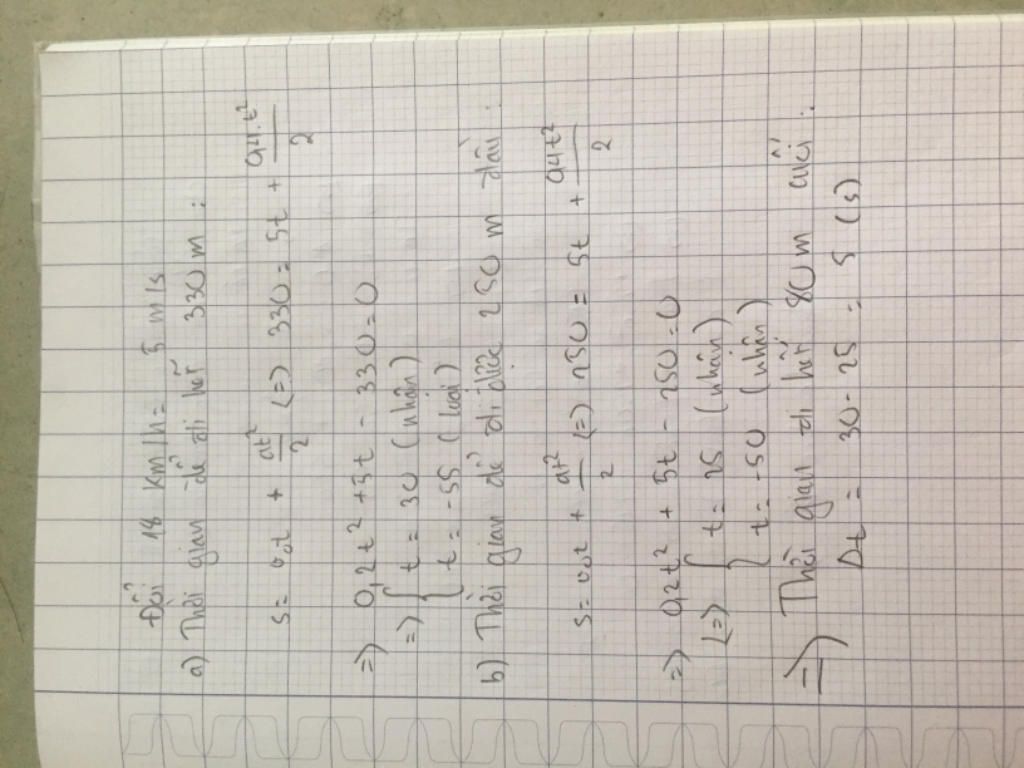 Đổi 18 km/h = 5 m/s
a) Thời gian để đi hết 330 m :
s = v₀t + at²/2 (=) 330 = 5t + 0,4.t²/2
=) 0,2t² + 5t - 330 = 0
=) { t = 30 (nhận)
t = -55 (loại)
b) Thời gian để đi được 250 m đầu.
s = v₀t + at²/2 (=) 250 = 5t + 0,4t²/2
=) 0,2t² + 5t - 250 = 0
(=) { t = 25 (nhận)
t = -50 (nhận)
=) Thời gian đi hết 80 m cuối.
Δt = 30 - 25 = 5 (s)